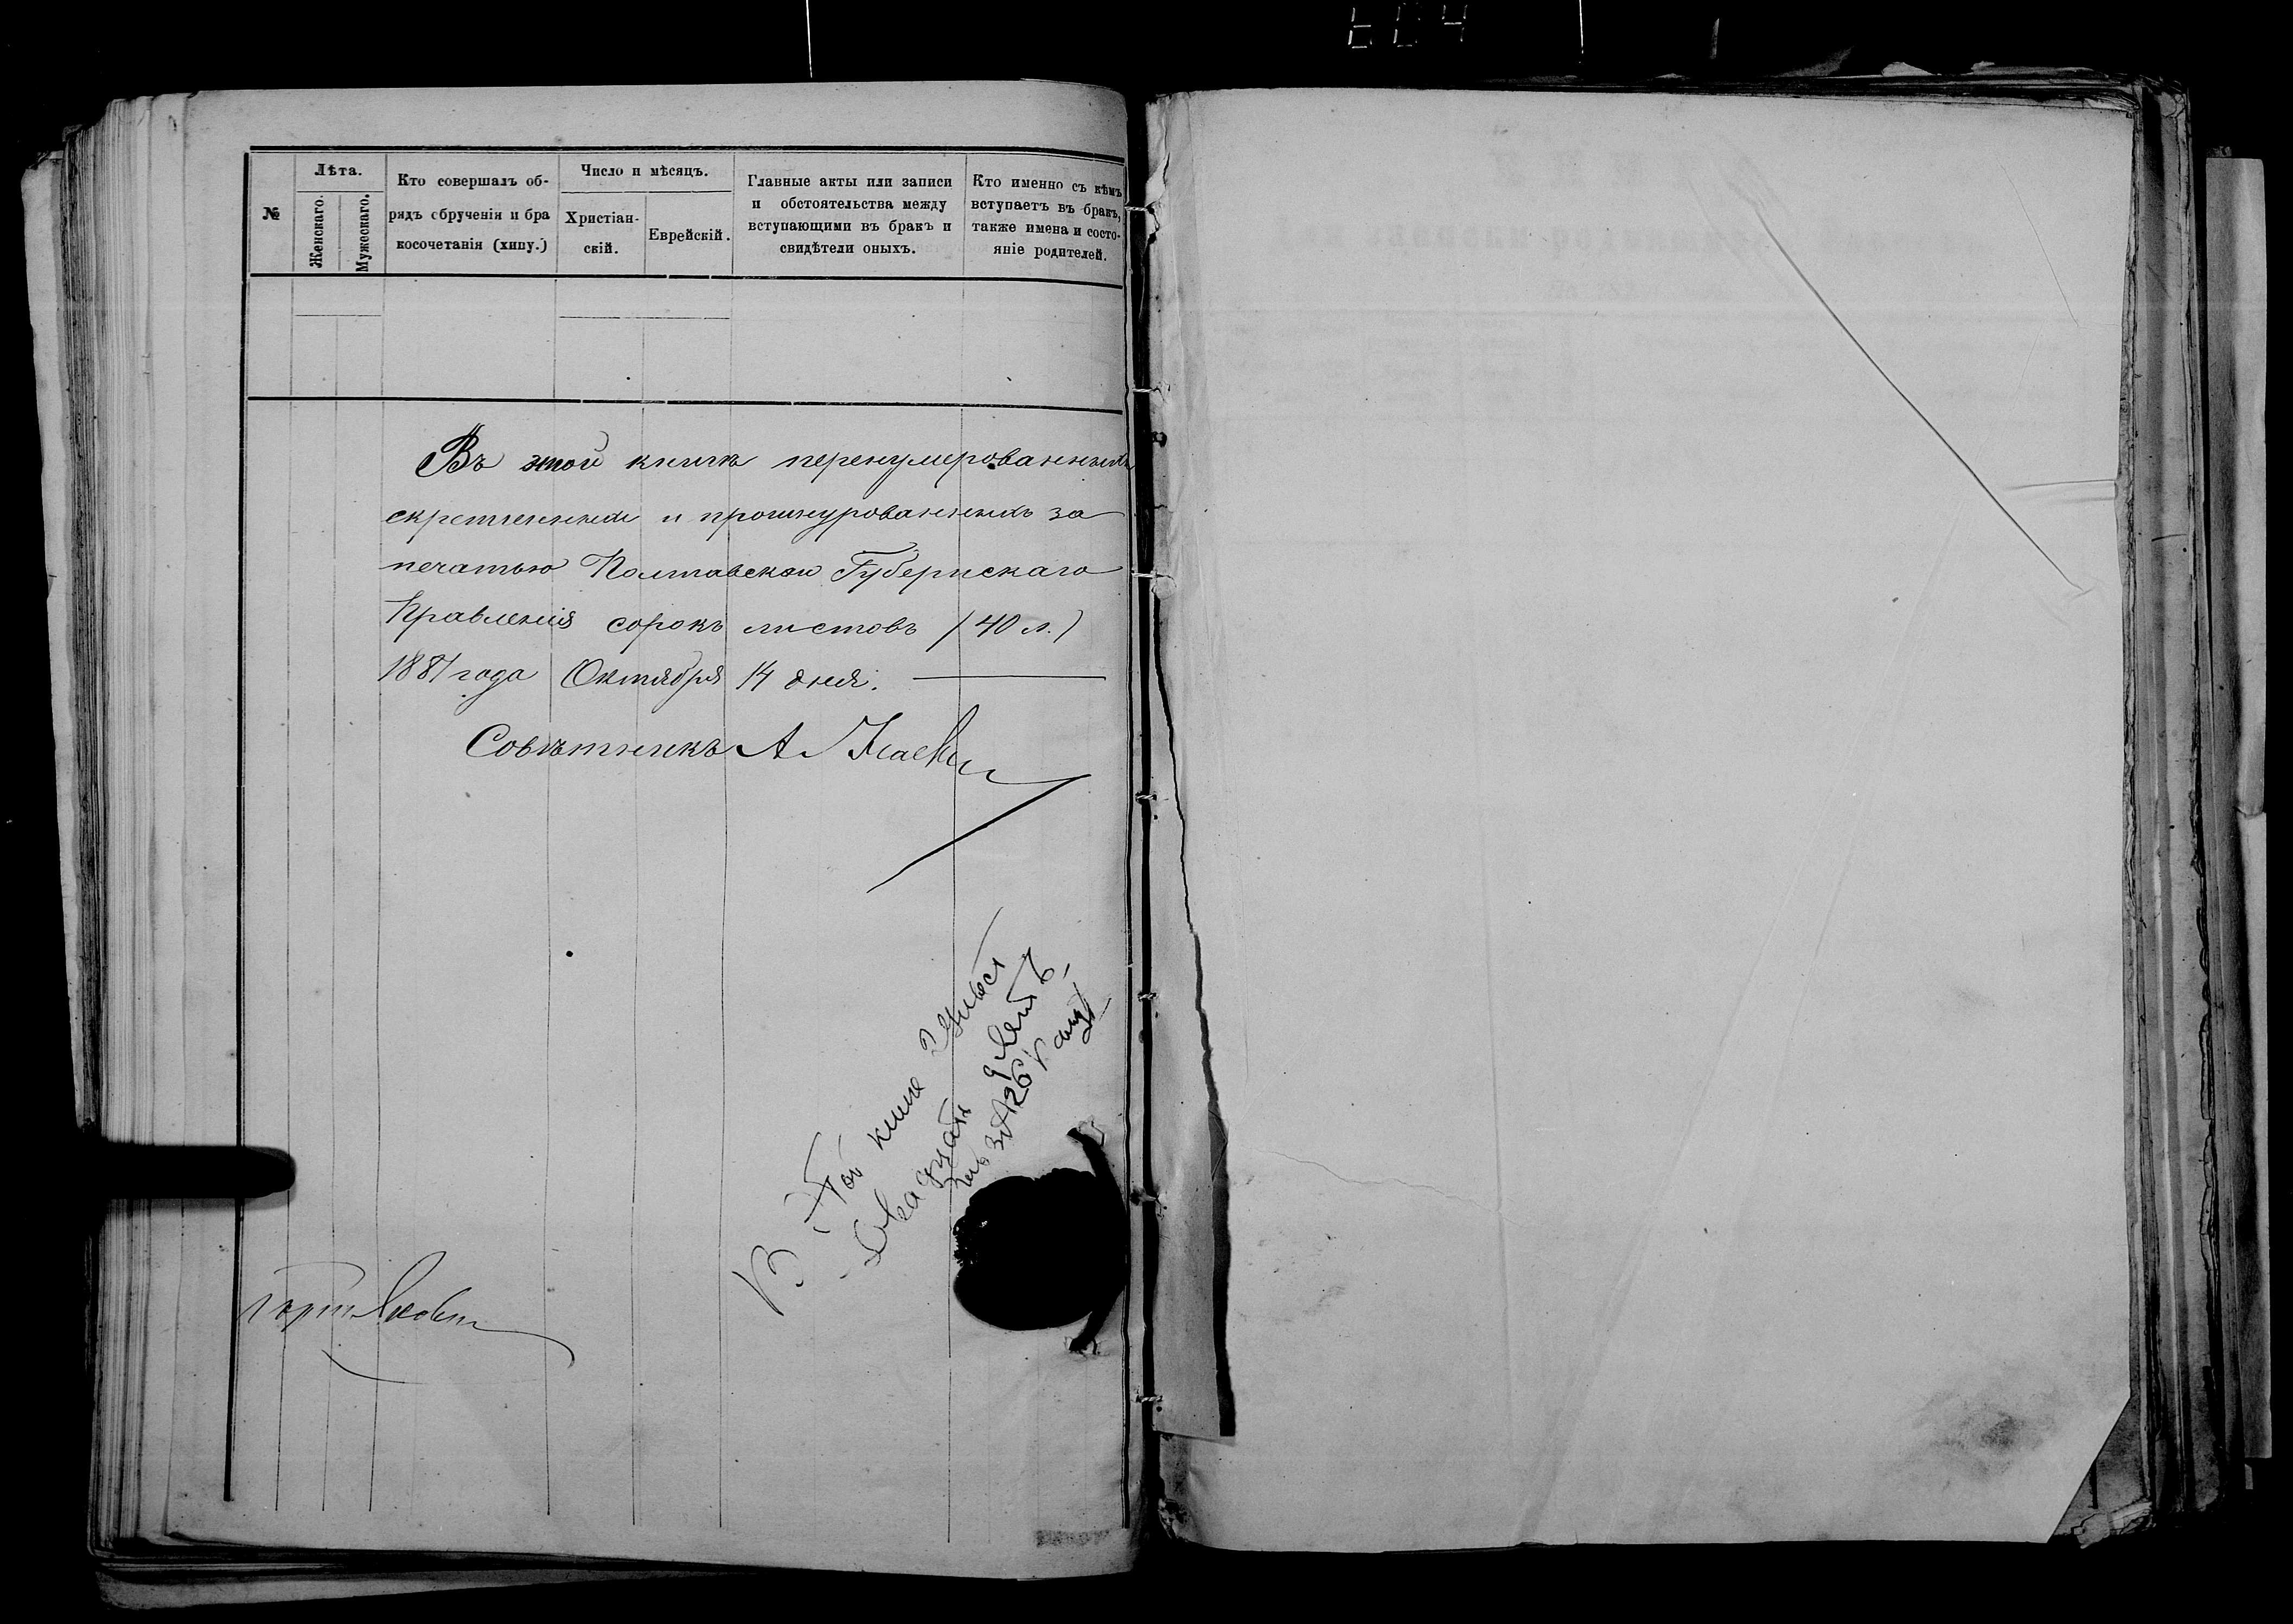 №
Лѣта.
Женскаго.
Мужескаго.
Кто совершалъ об-
рядъ обрученія и бра
косочетанія (хипу.)
Число и мѣсяцъ.
Христіан-
скій.
Еврейскій.
Главные акты или записи
и обстоятельства между
вступающими въ бракъ и
свидѣтели оныхъ.
Кто именно съ кѣмъ
вступаетъ въ бракъ,
также имена и состо-
яніе родителей.
Въ этой книгѣ перенумерованныхъ
скрепленных и прошнурованныхъ за
печатью Полтавскаи Губернскаго
Правленія сорокъ листовъ (40 л.)
1881 года Октября 14 дня.
Совѣтникъ А.
В этой книге
девять